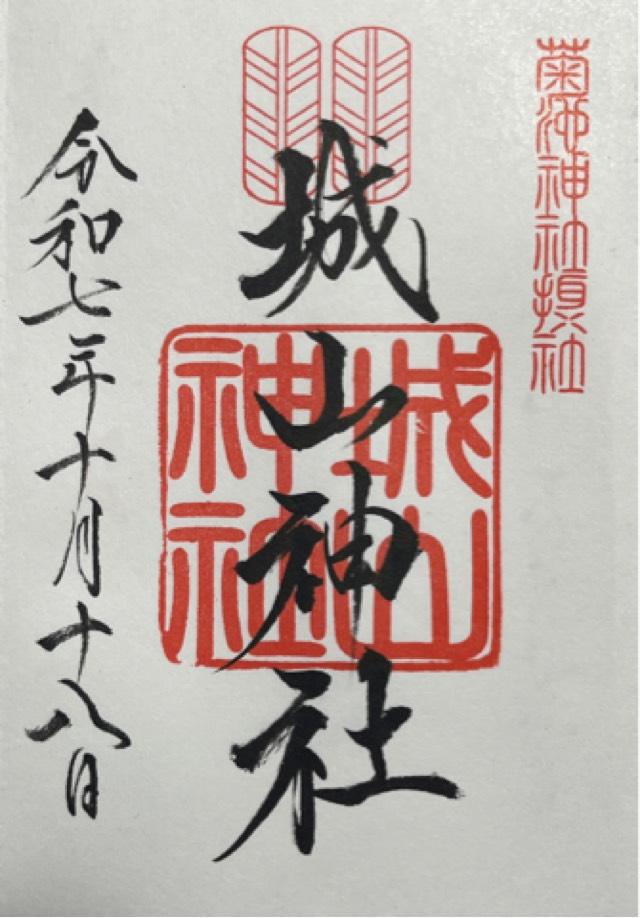 菊池神社摂社
城山神社
城山
神社
令和七年十月十八日